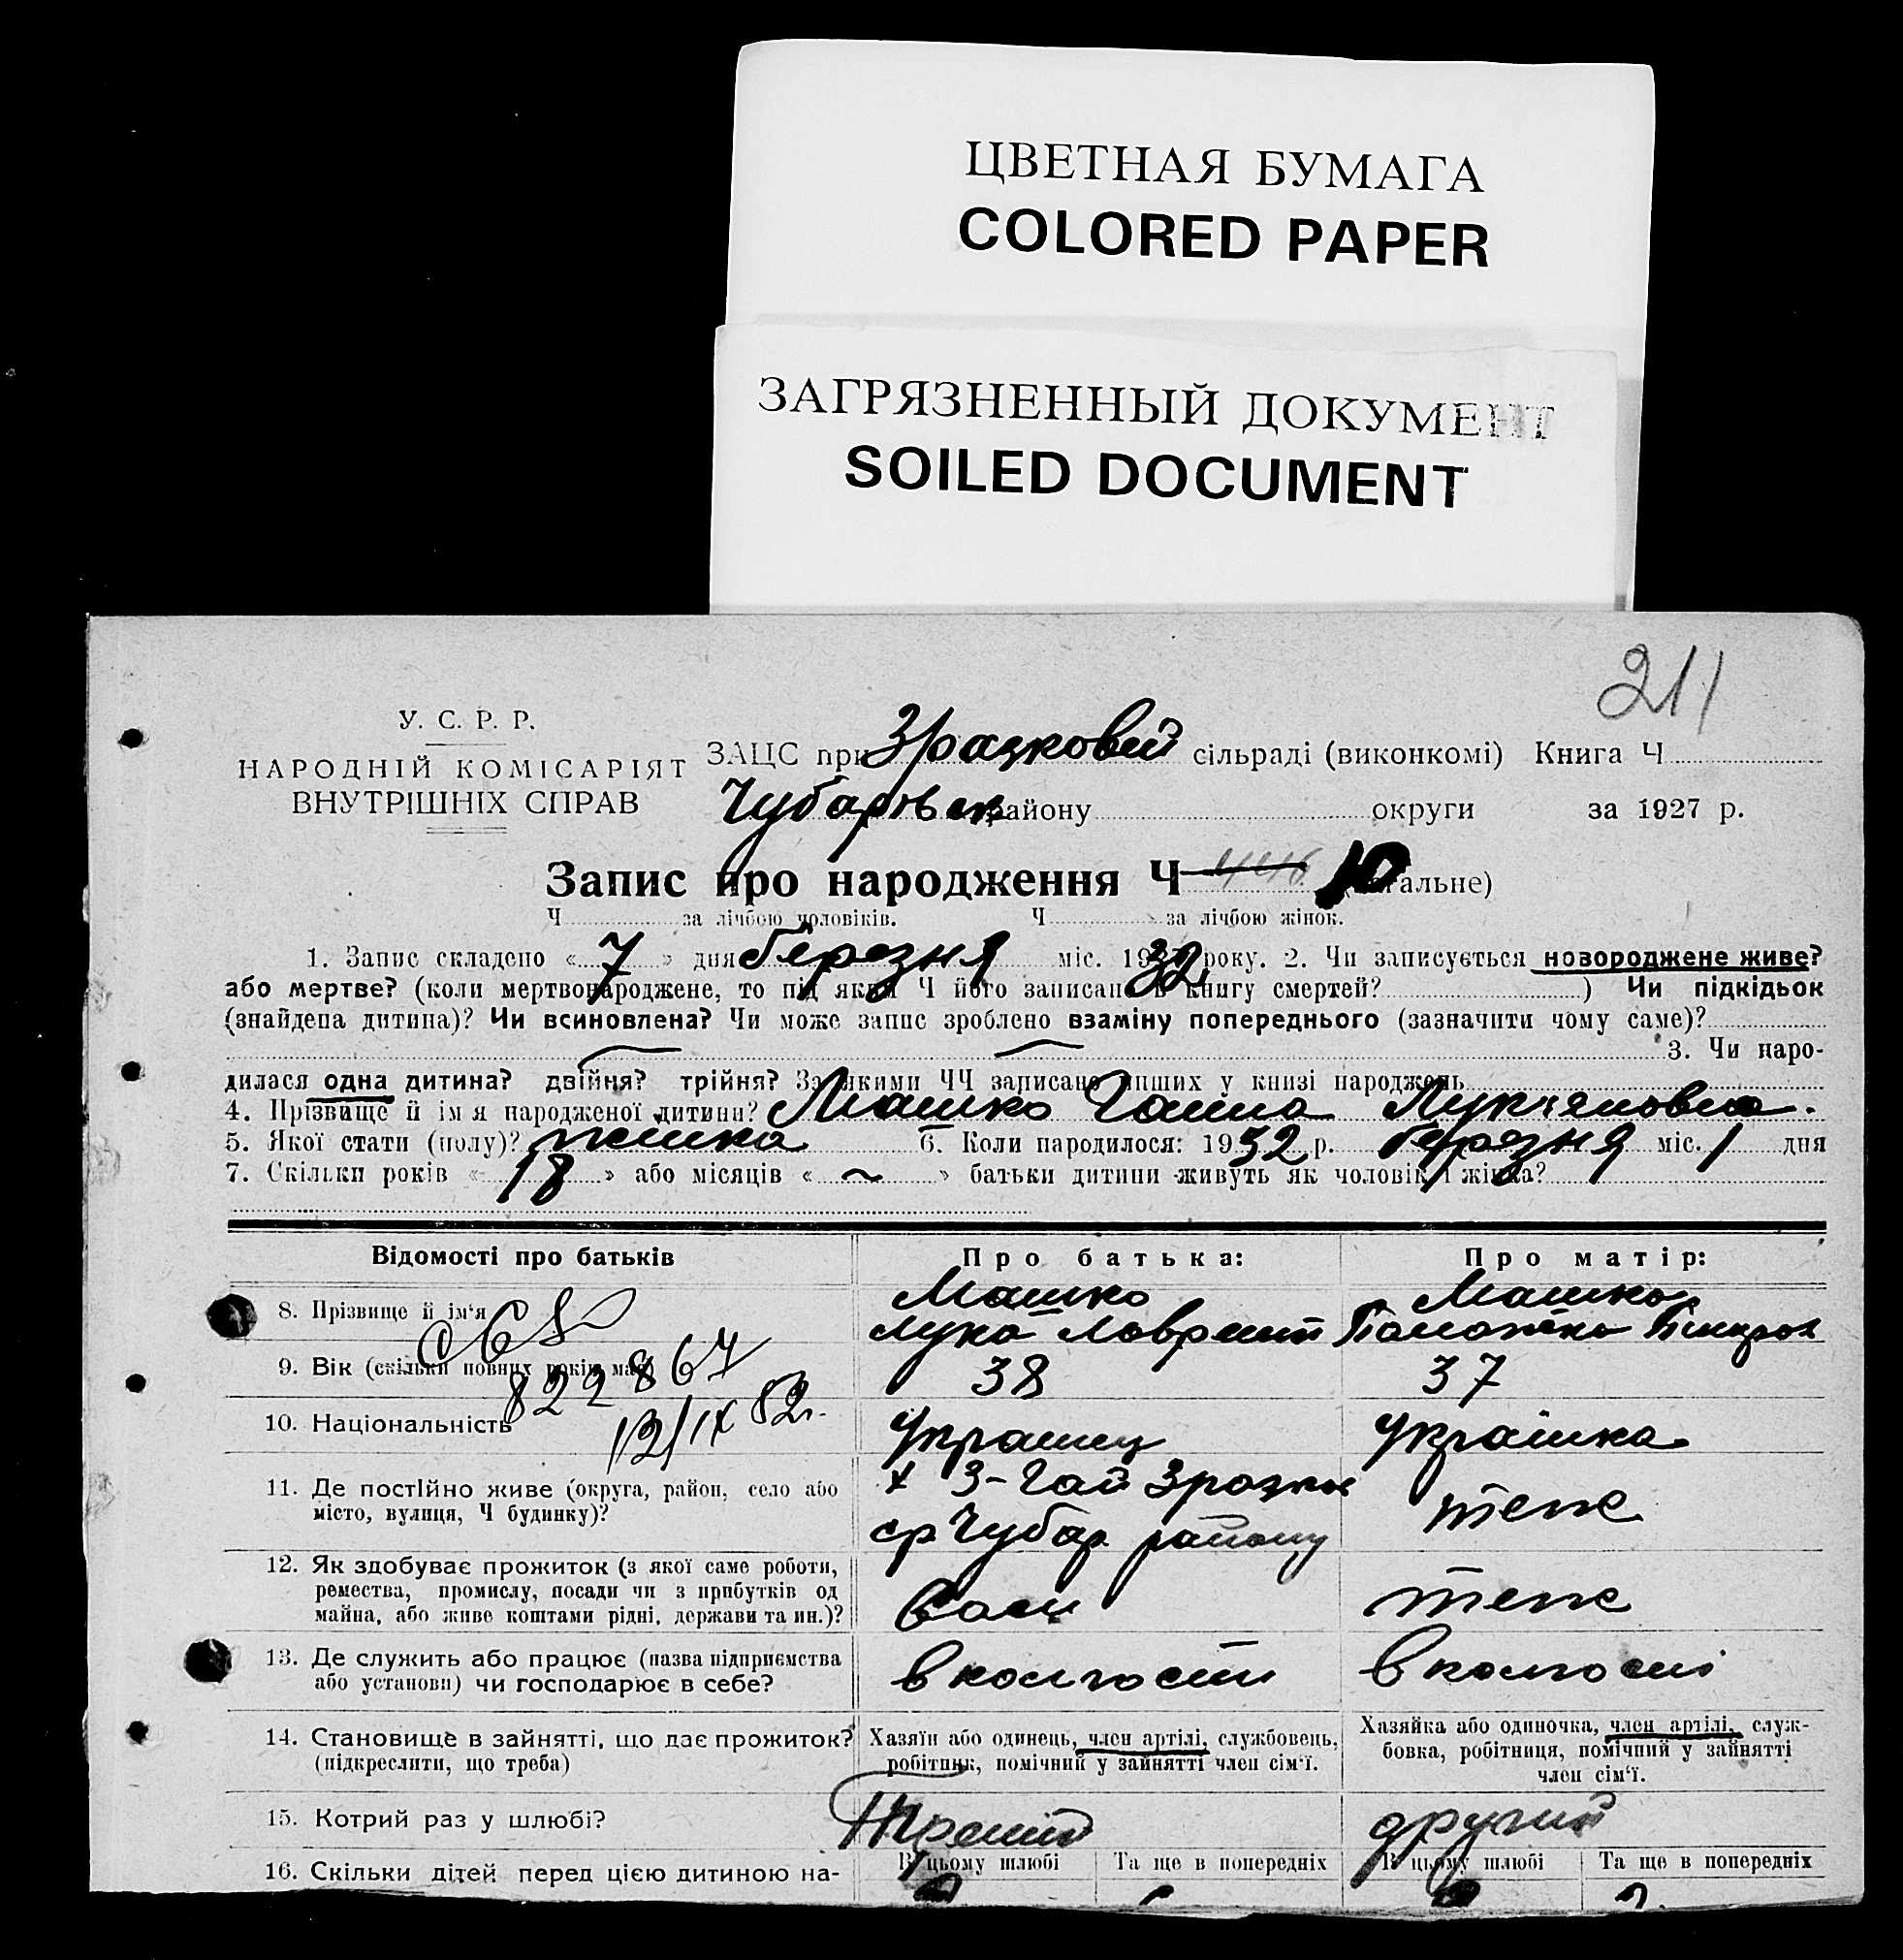 ЦВЕТНАЯ БУМАГА
COLORED PAPER
ЗАГРЯЗНЕННЫЙ ДОКУМЕНТ
SOILED DOCUMENT
211
У. С. Р. Р.
НАРОДНІЙ КОМІСАРІЯТ
ВНУТРІШНІХ СПРАВ
ЗАЦС при Зразковей сільраді (виконкомі) Книга Ч
Чубарівск району округи за 1927 р.
Запис про народження Ч 10 (загальне)
Ч за лічбою чоловіків. Ч за лічбою жінок.
1. Запис складено « 7 » дня березня міс. 1932 року. 2. Чи записується новороджене живе?
або мертве? (коли мертвонароджене, то під яким Ч його записано в книгу смертей? ) Чи підкідьок
(знайдена дитина)? Чи всиновлена? Чи може запис зроблено взаміну попереднього (зазначити чому саме)?
3. Чи наро-
дилася одна дитина? двійня? трійня? За якими ЧЧ записано инших у книзі народжень
4. Прізвище й ім'я народженої дитини? Машко Ганна Лук'яновна.
5. Якої стати (полу)? жінка 6. Коли народилося: 1932 р. березня міс. 1 дня
7. Скільки років « 18 » або місяців « ~ » батьки дитини живуть як чоловік і жінка?
Відомості про батьків Про батька: Про матір:
8. Прізвище й ім'я Машко Лука Лаврент Машко
9. Вік (скільки повних років має) 38 37
822867
12/IX 82г.
10. Національність Українец Українка
11. Де постійно живе (округа, район, село або
місто, вулиця, Ч будинку)?
х 3-Гай Зразков
ср Чубар району
теж
12. Як здобуває прожиток (з якої саме роботи,
ремества, промислу, посади чи з прибутків од
майна, або живе коштами рідні, держави та ин.)?
теж
13. Де служить або працює (назва підприємства
або установи) чи господарює в себе?
в колгоспі в колгоспі
14. Становище в зайнятті, що дає прожиток?
(підкреслити, що треба)
Хазяїн або одинець, член артілі, службовець,
робітник, помічний у зайнятті член сім'ї.
Хазяйка або одиночка, член артілі, служ-
бовка, робітниця, помічний у зайнятті
член сім'ї.
15. Котрий раз у шлюбі? Третий другий
16. Скільки дітей перед цією дитиною на-
В цьому шлюбі Та ще в попередніх В цьому шлюбі Та ще в попередніх